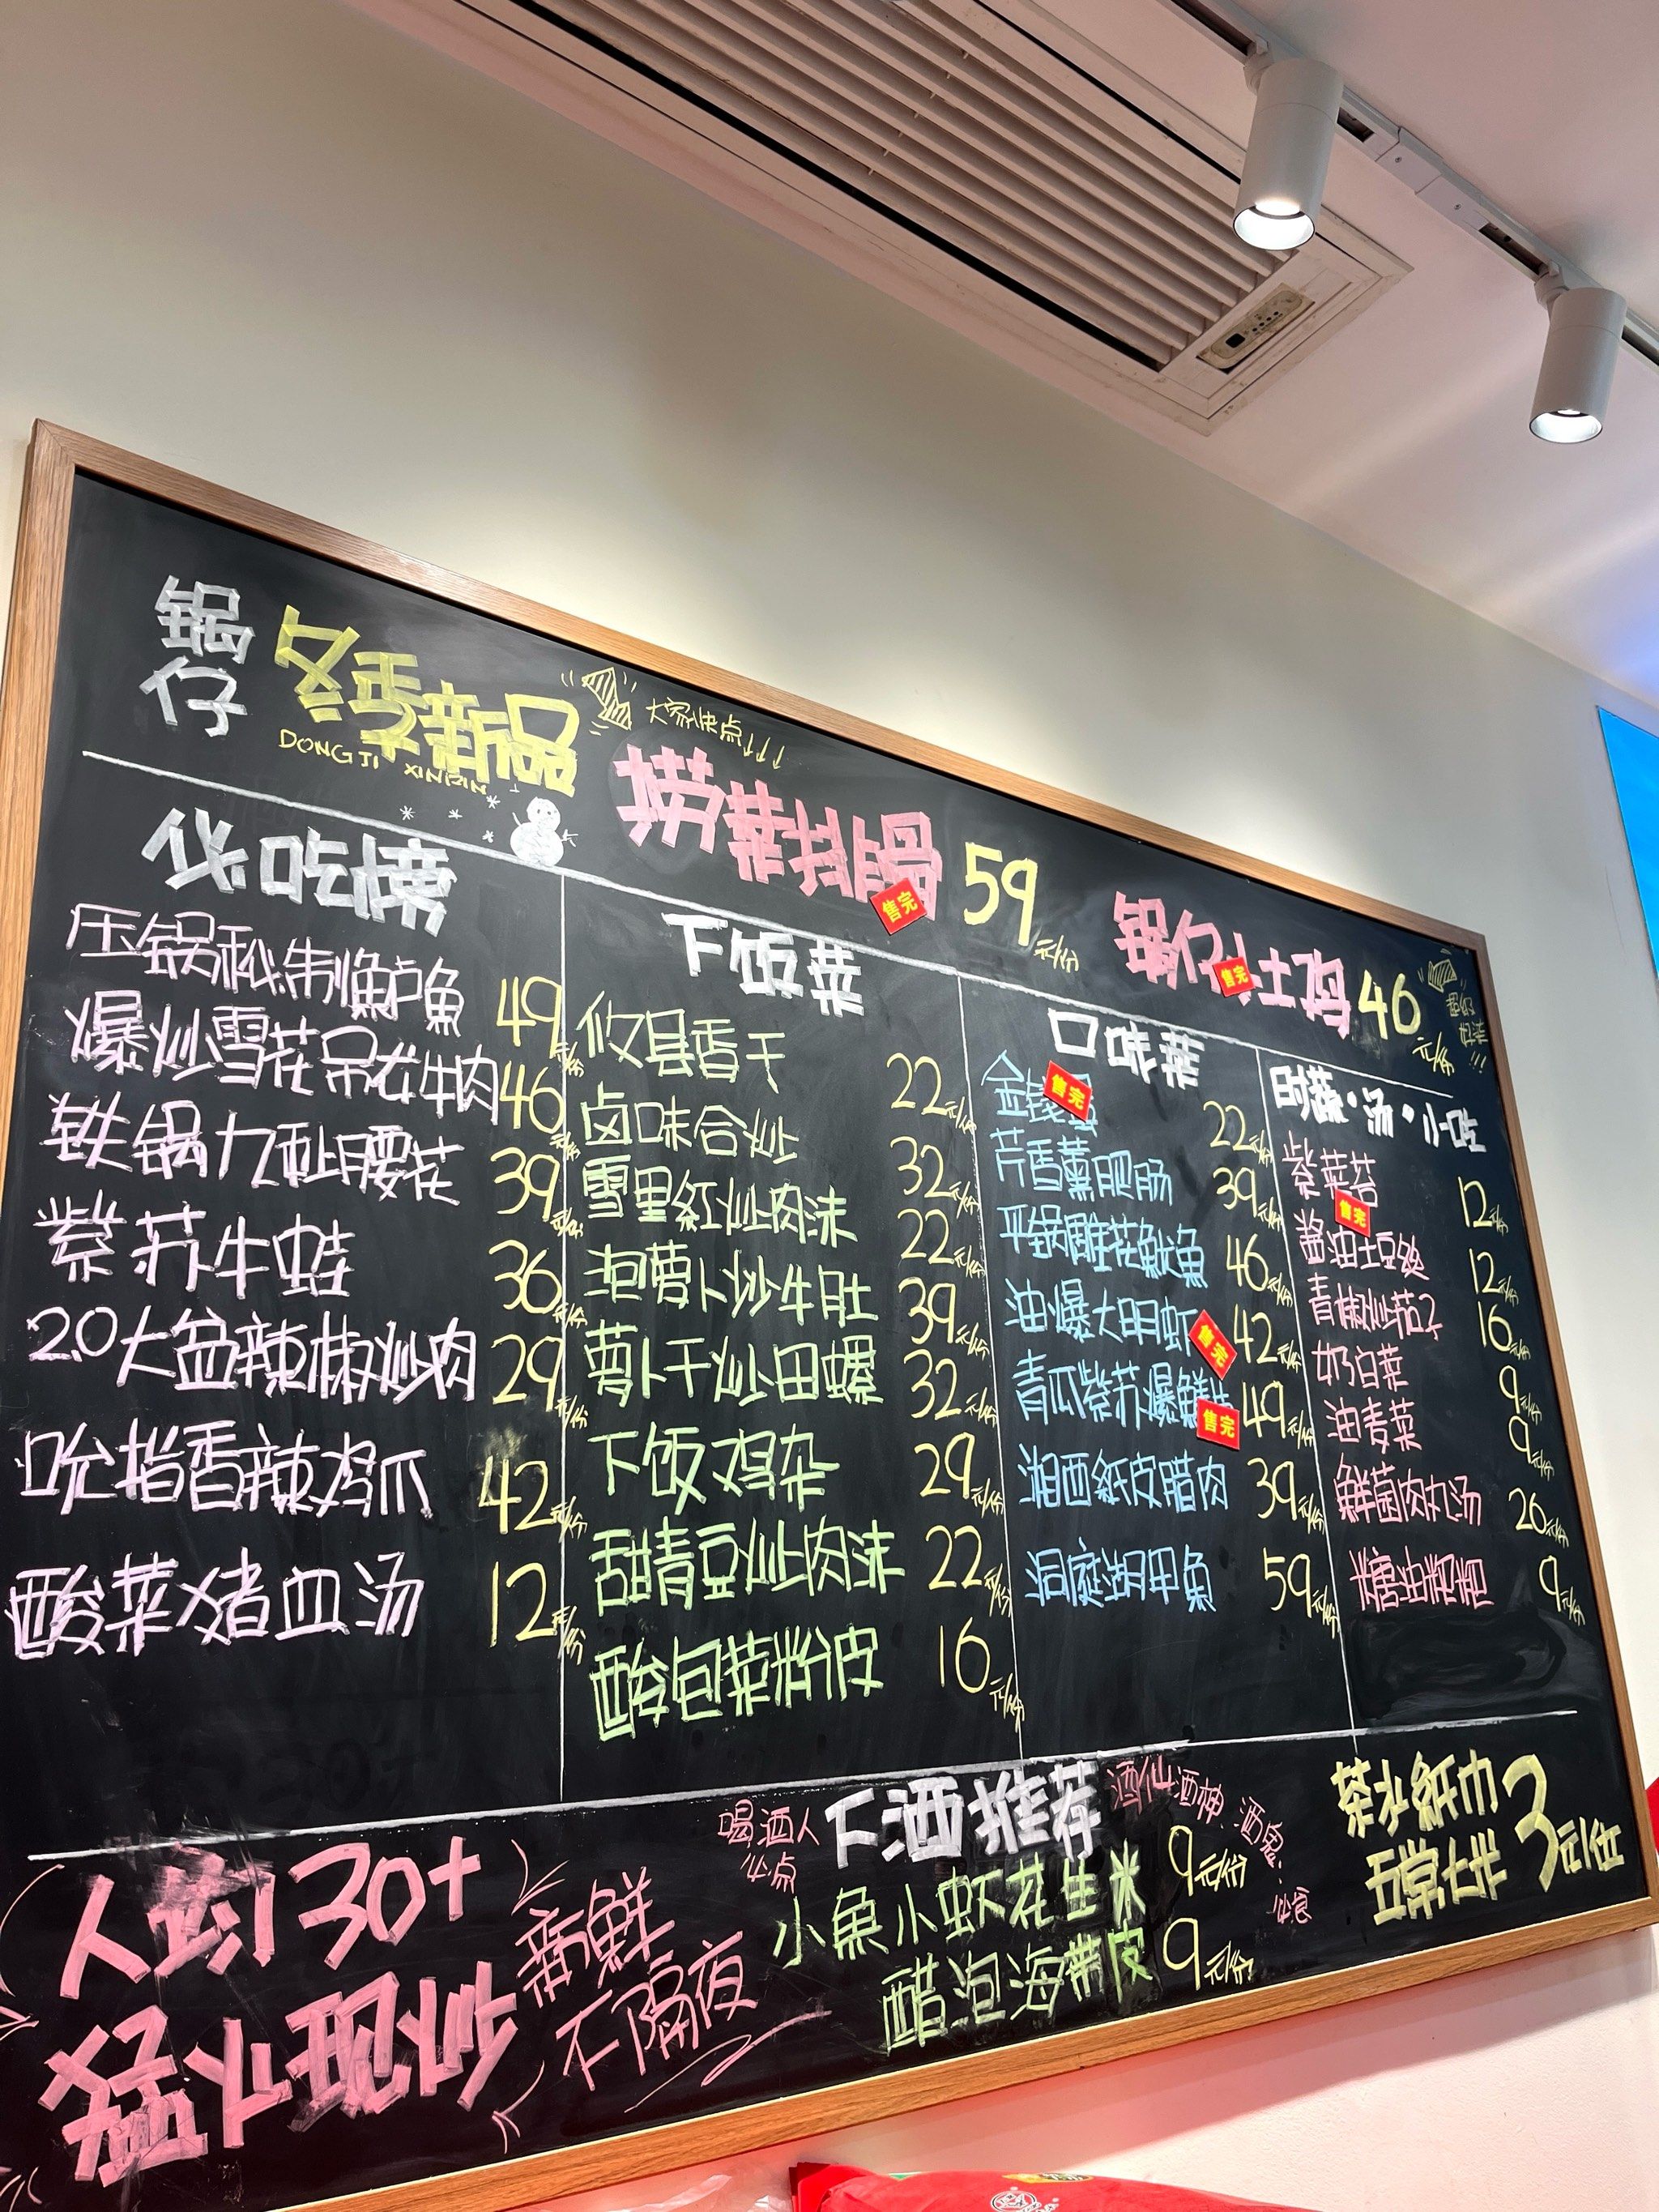 锅仔
冬季新品
DONG JI XINPIN
大家快点↓↓↓
捞菜排骨 59元/份
售完
锅仔小土鸡 46元/份
售完
必吃榜
压锅秘制鮰鱼 49元/份
爆炒雪花吊龙牛肉 46元/份
铁锅九秒腰花 39元/份
紫苏牛蛙 36元/份
2.0大盆辣椒炒肉 29元/份
吮指香辣鸡爪 42元/份
酸菜猪血汤 12元/份
下饭菜
攸县香干 22元/份
卤味合炒 32元/份
雪里红炒肉沫 22元/份
泡萝卜炒牛肚 39元/份
萝卜干炒田螺 32元/份
下饭鸡杂 29元/份
甜青豆炒肉沫 22元/份
酸包菜粉皮 16元/份
口味菜
金钱蛋 22元/份
售完
芹香薰肥肠 39元/份
平锅雕花鱿魚 46元/份
油爆大明虾 42元/份
售完
青瓜紫苏爆鮮 49元/份
售完
湘西紙皮腊肉 39元/份
洞庭湖甲魚 59元/份
时蔬·汤·小吃
紫菜苔 12元/份
售完
酱油土豆丝 12元/份
青椒炒茄子 16元/份
奶白菜 9元/份
油麦菜 9元/份
鮮菌肉丸汤 26元/份
糖油粑粑 9元/份
人均30+
猛火现炒
新鲜
不隔夜
喝酒人
必点
下酒推荐
酒仙、酒神、酒鬼、
必食
小魚小虾花生米 9元/份
醋泡海带皮 9元/份
茶水紙巾
五常大米
3元/位